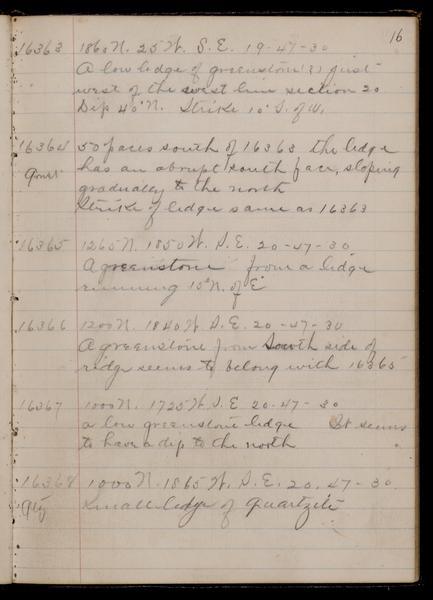 16
16363 1860 N. 25 W. S.E. 19-47-30
A low ledge of greenstone (?) just
west of the west line section 20
Dip 40° N. Strike 10° S. of W.
16364 50 paces south of 16363 the ledge
has an abrupt south face, sloping
gradually to the north
Strike of ledge same as 16363
16365 1260 N. 1850 W. S.E. 20-47-30
A greenstone from a ledge
running 10° N. of E
16366 1200 N. 1840 W. S.E. 20-47-30
A greenstone from South side of
ridge seems to belong with 16365
16367 1000 N. 1725 W. S.E. 20-47-30
a low greenstone ledge It seems
to have a dip to the north
16368 1000 N. 1865 W. S.E. 20.47-30
Qtz Small ledge of quartzite